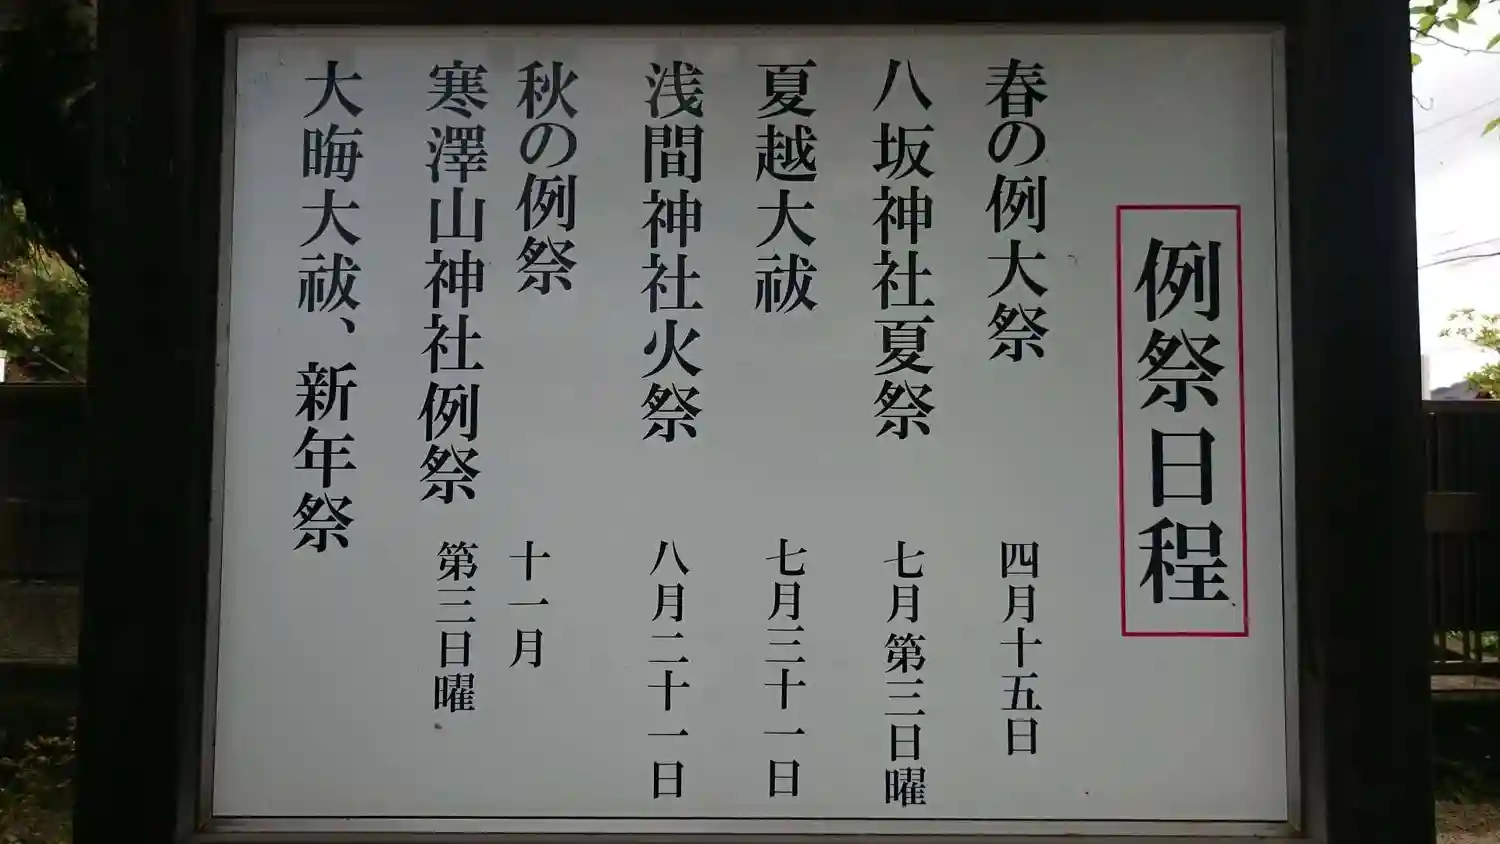 例祭日程
春の例大祭 四月十五日
八坂神社夏祭 七月第三日曜
夏越大祓 七月三十一日
浅間神社火祭 八月二十一日
秋の例祭 十一月
寒澤山神社例祭 第三日曜
大晦大祓、新年祭